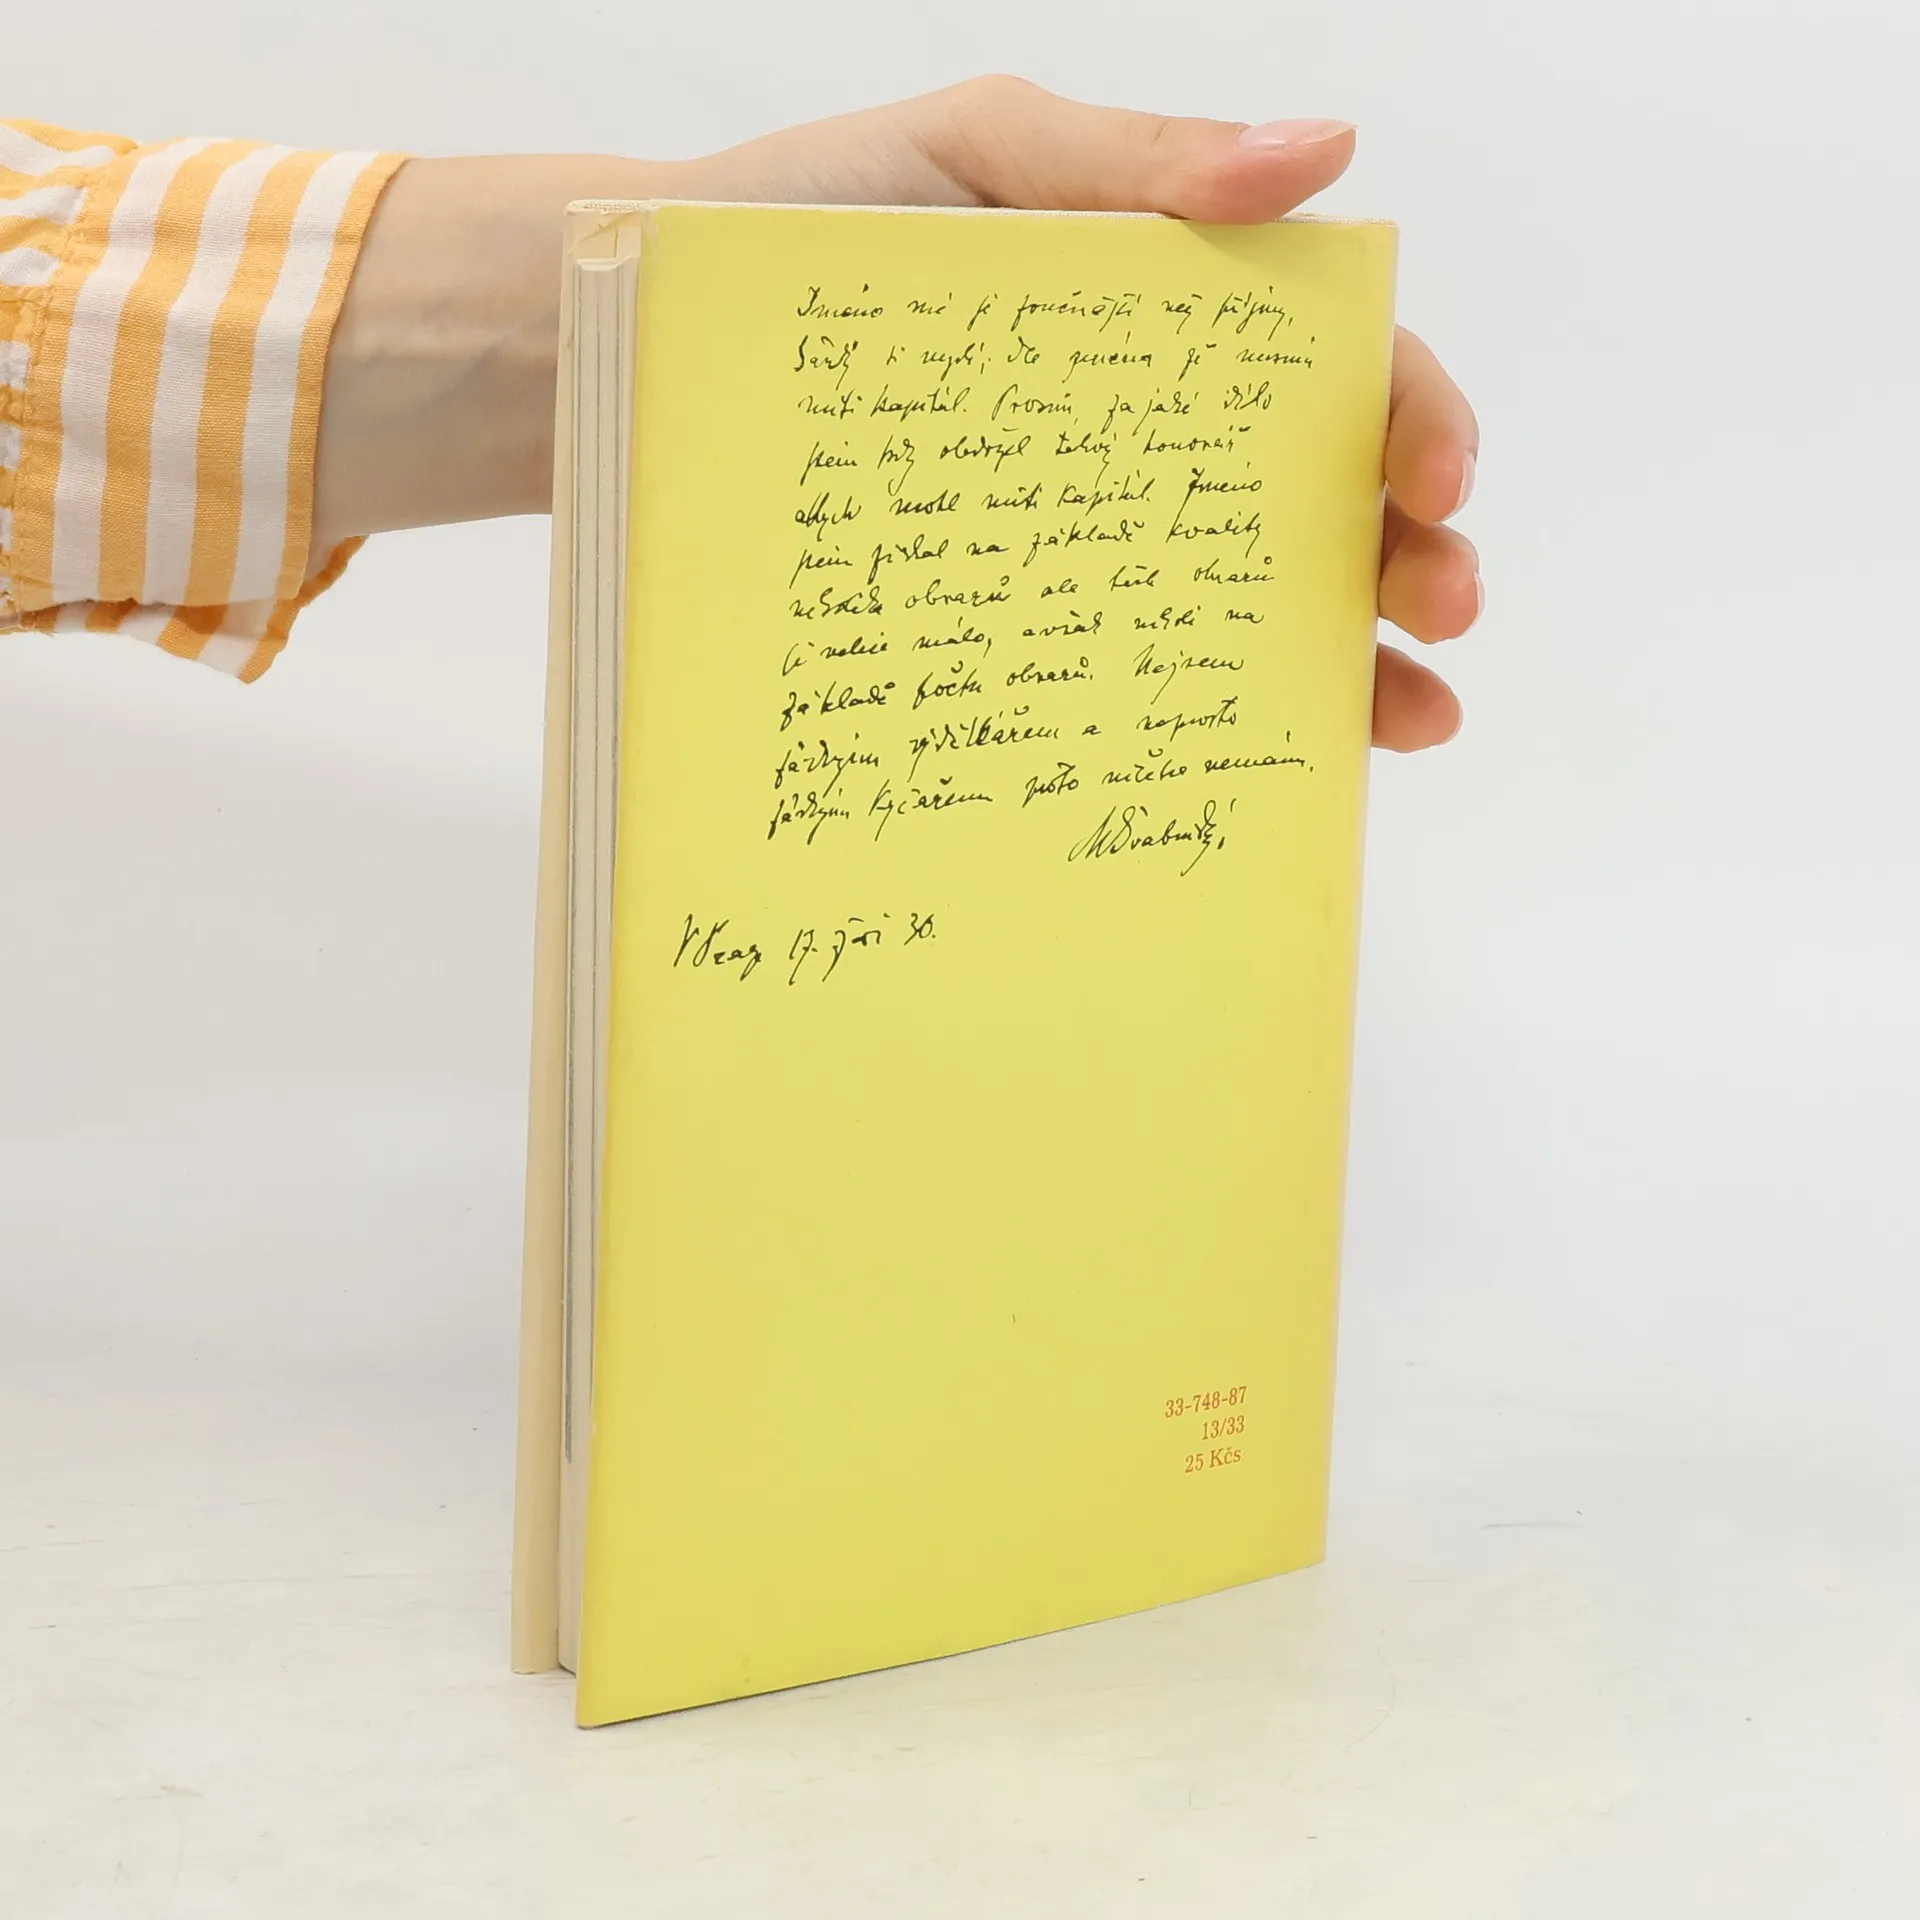 Jméno mé je
každý ti
míti kapitál. Prosím, za jaké dílo
jsem kdy obdržel takový honorář
abych mohl míti kapitál. Jméno
jsem získal na základě kvality
několika obrazů ale těch obrazů
je velice málo, avšak nikoli na
základě počtu obrazů. Nejsem
žádným výdělkářem a naprosto
žádným kýčařem proto ničeho nemám.
MŠvabinský
V Praze 17. září 30.
33-748-87
13/33
25 Kčs